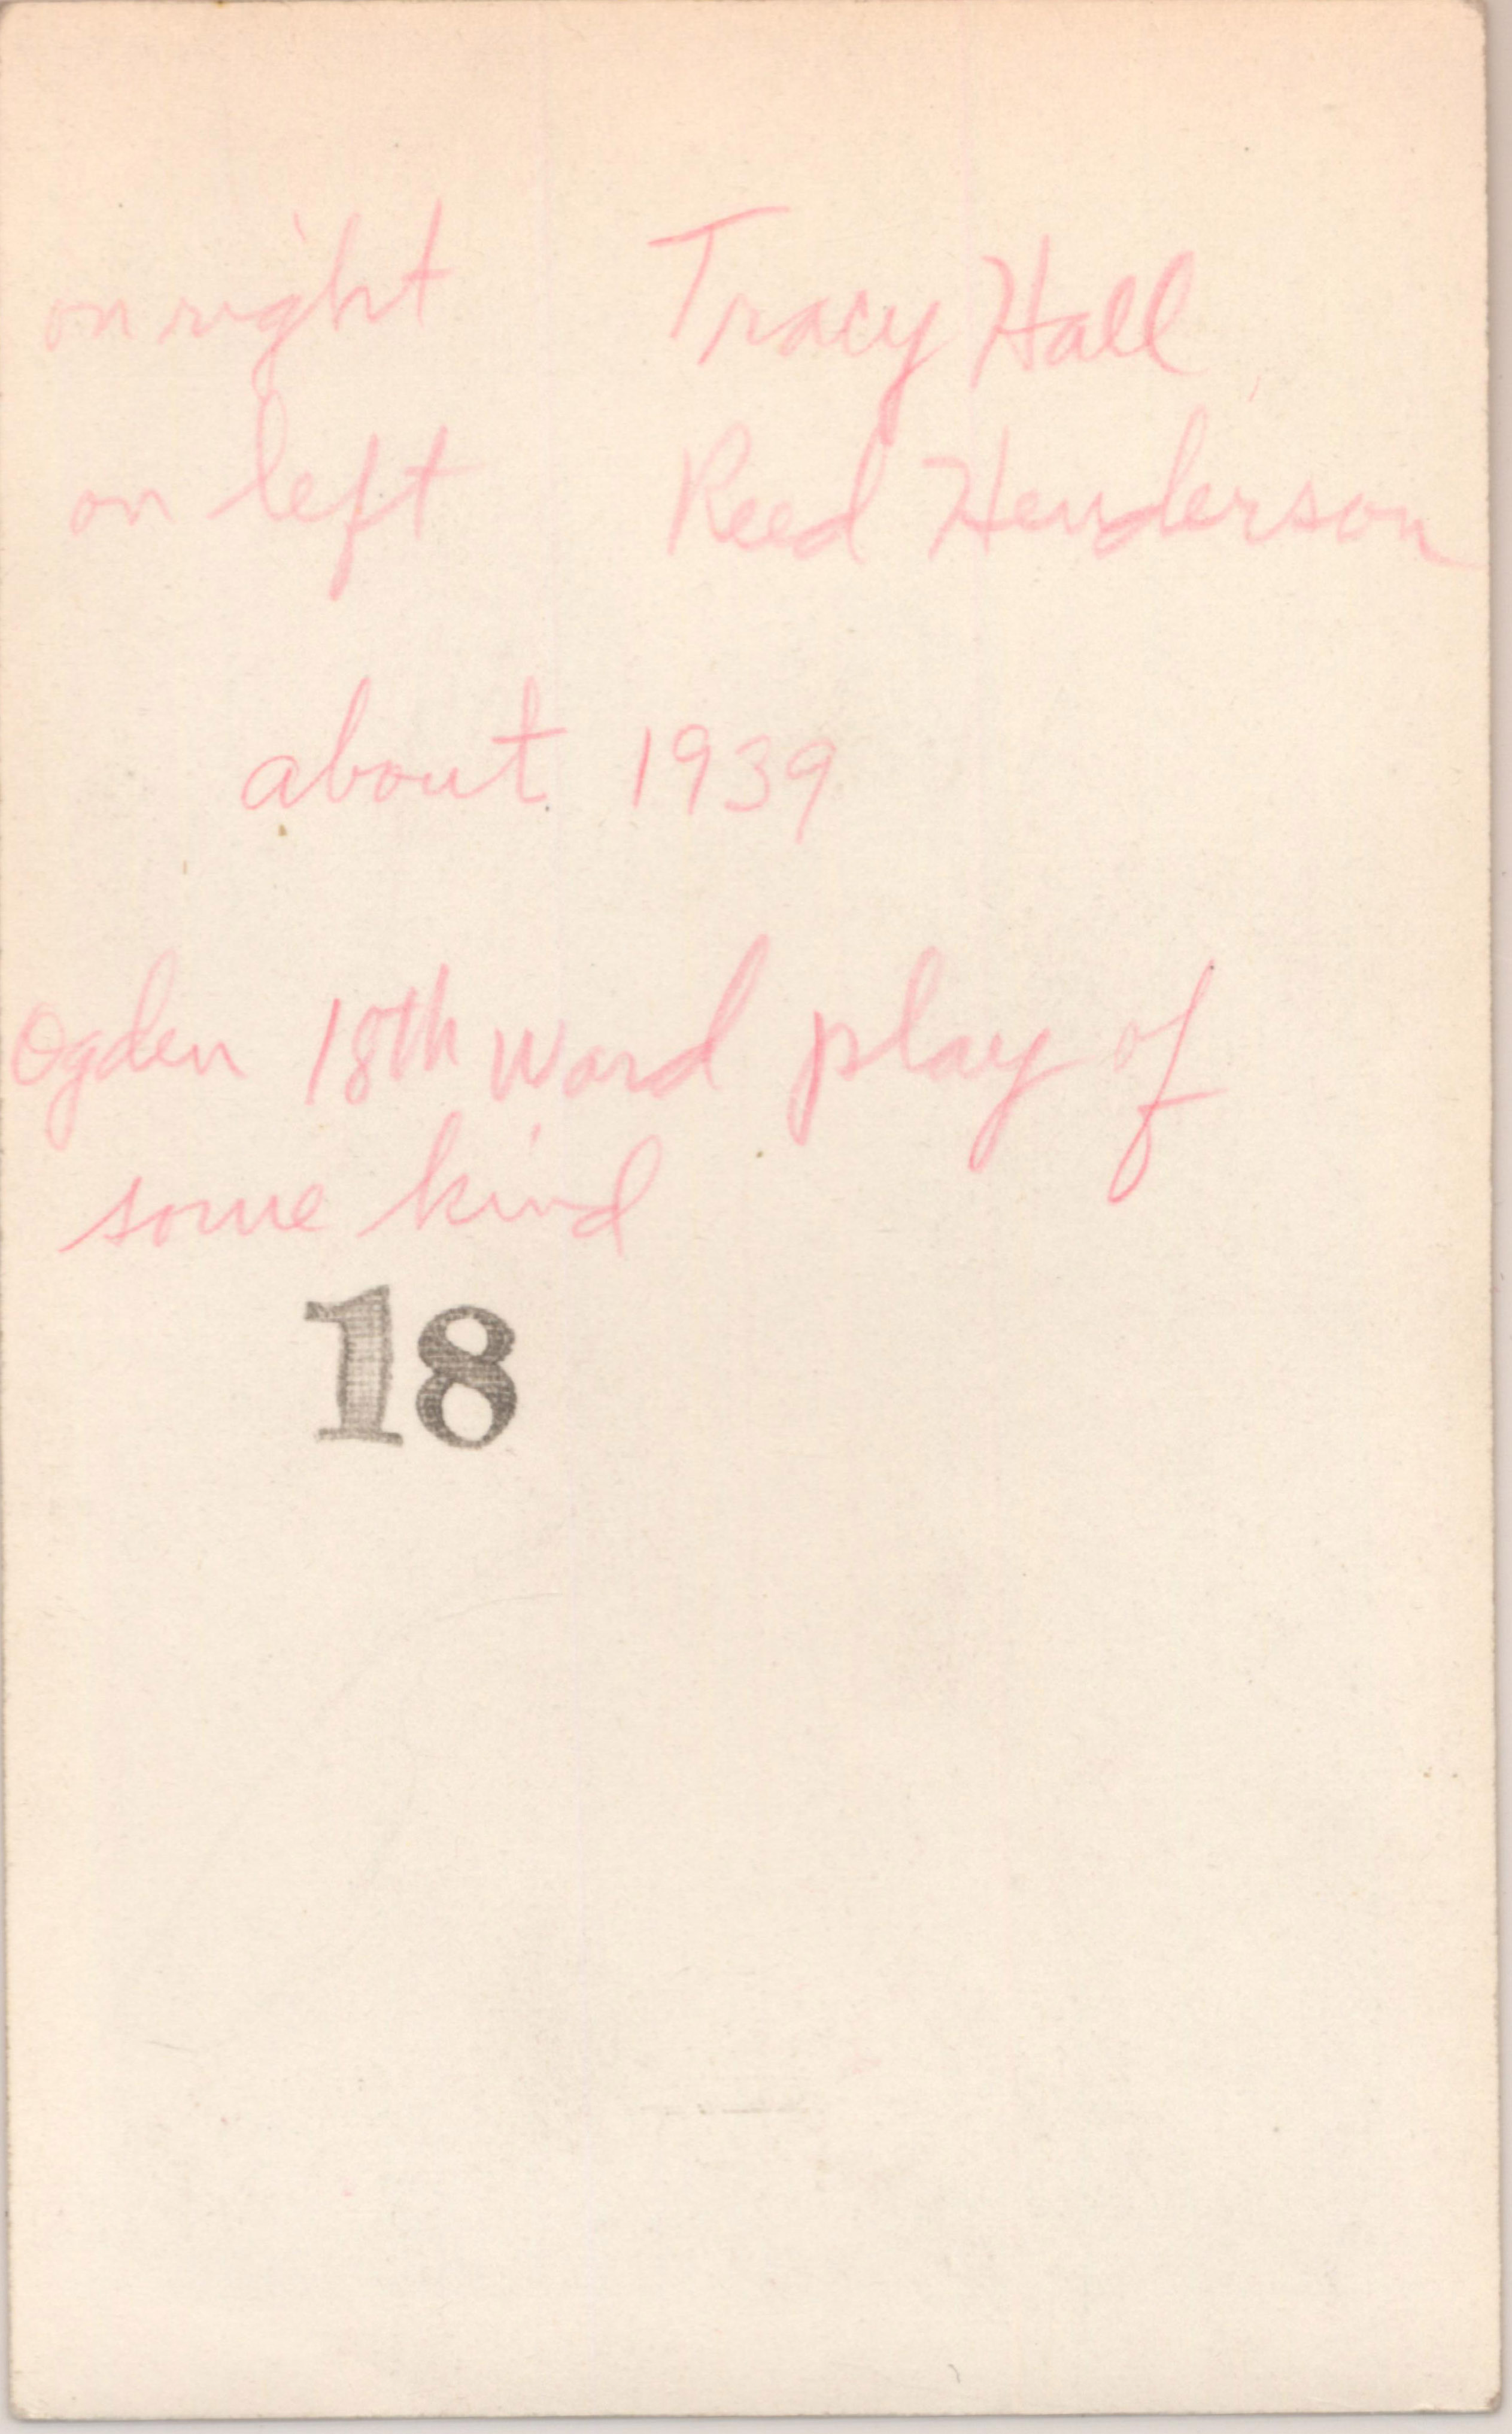 on right Tracy Hall
on left Reed Henderson
about 1939
Ogden 18th Ward play of
some kind
18